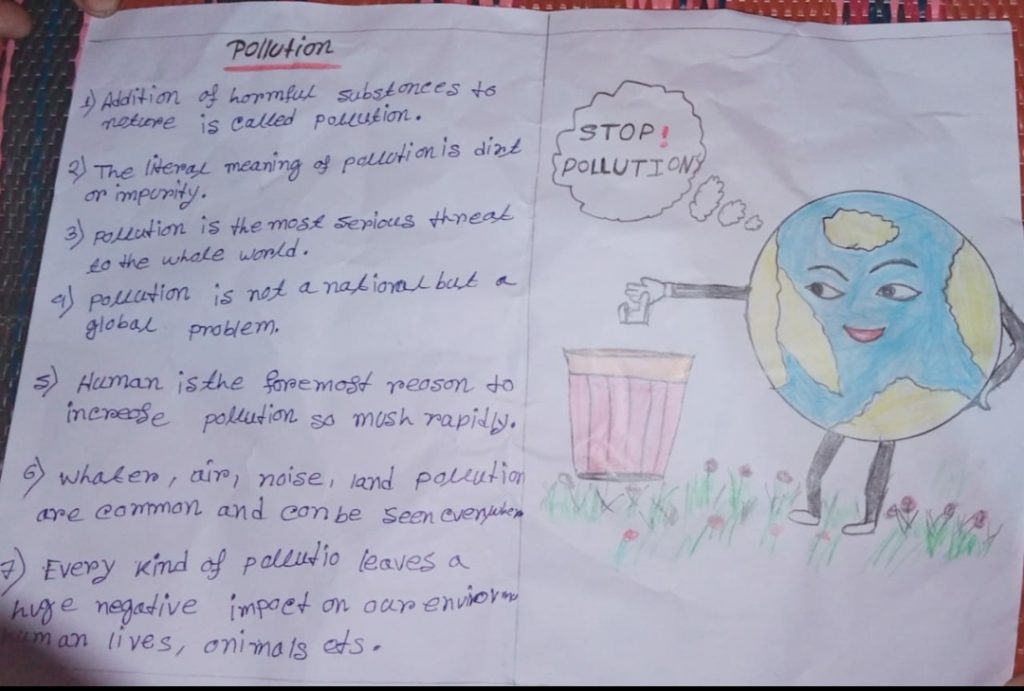 Pollution
1) Addition of harmful substances to
nature is called pollution.
2) The literal meaning of pollution is dirt
or impurity.
3) pollution is the most serious threat
to the whole world.
4) pollution is not a national but a
global problem.
5) Human is the foremost reason to
increase pollution so mush rapidly.
6) whater, air, noise, land pollution
are common and can be seen everywhere
7) Every kind of pollutio leaves a
huge negative impact on our environm
human lives, animals ets.
STOP!
POLLUTION